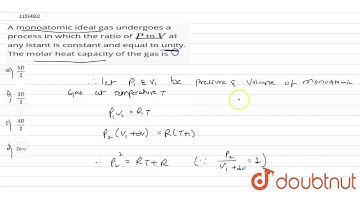 11034602
A monoatomic ideal gas undergoes a
process in which the ratio of P to V at
any istant is constant and equal to unity.
The molar heat capacity of the gas is
a) 5R/2
b) 3R/2
c) 4R/2
d) Zero
∴ let P₁ & V₁ be pressure & volume of monoatomic
Gas at temperature T
P₁V₁ = RT
P₂(V₁+dv) = R(T+1)
∴ P₂² = RT+R (∵ P₂/(V₁+dv) = 1)
doubtnut